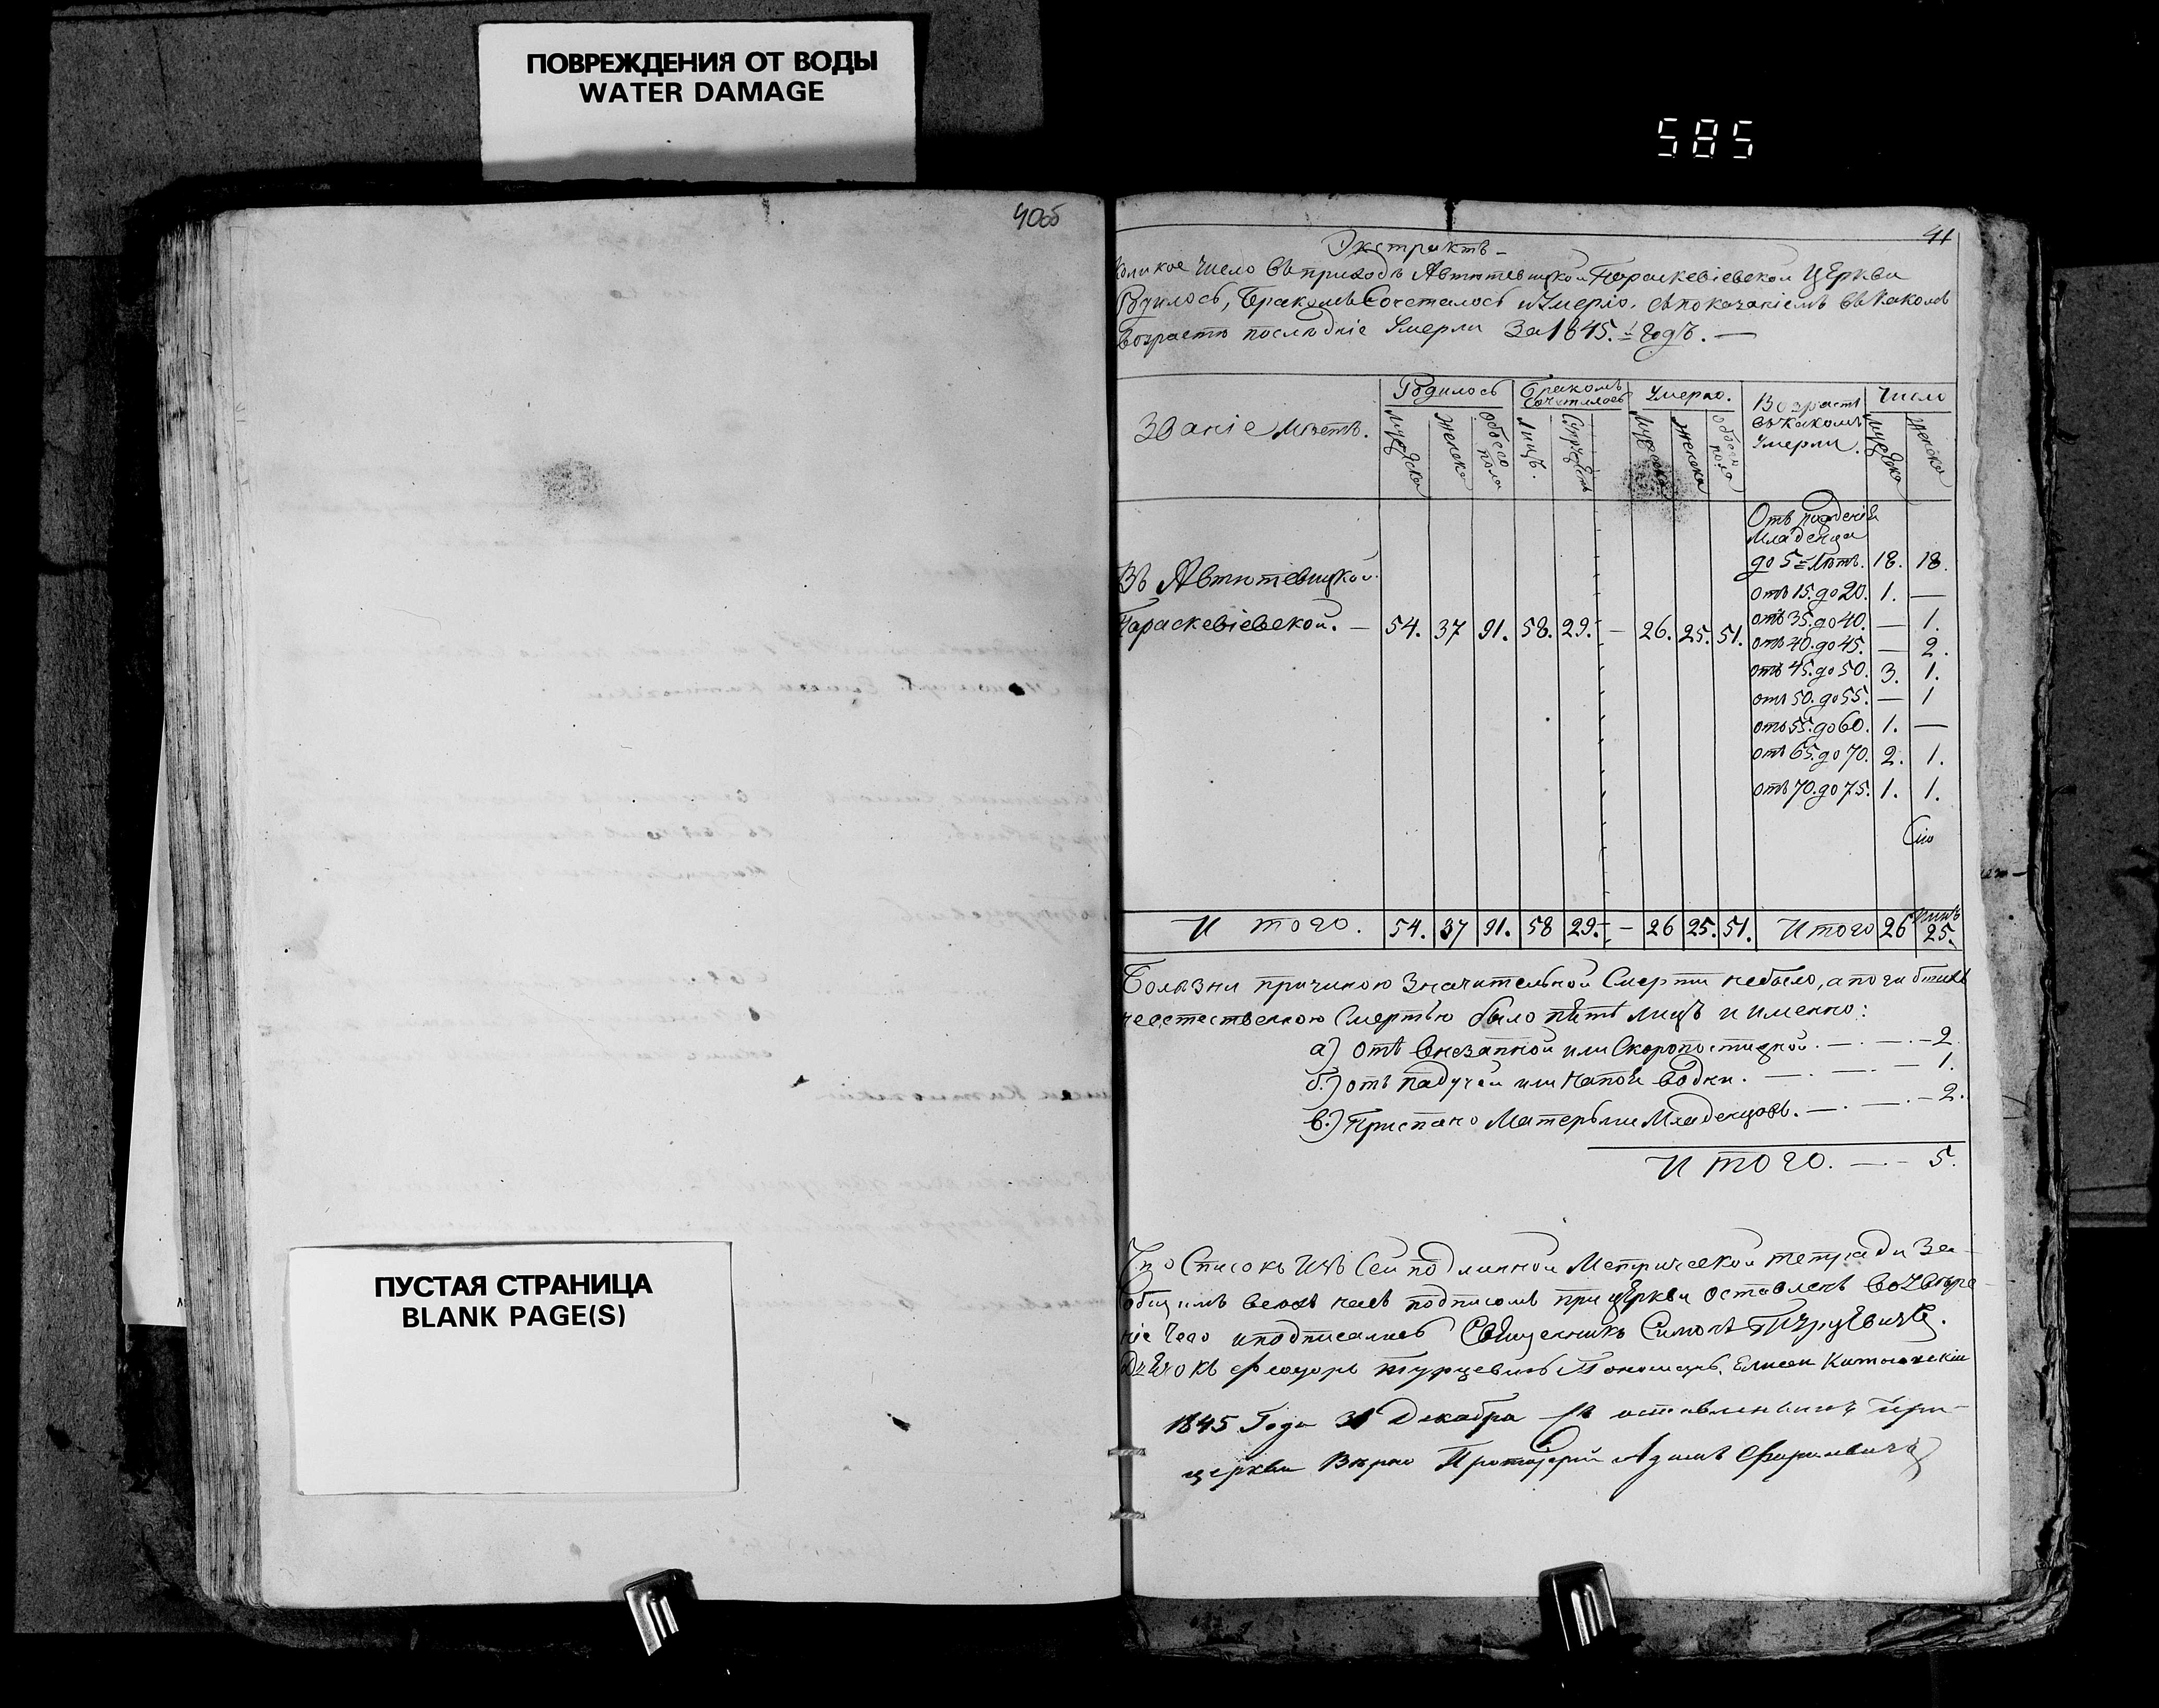 ПОВРЕЖДЕНИЯ ОТ ВОДЫ
WATER DAMAGE
585
40об
ПУСТАЯ СТРАНИЦА
BLANK PAGE(S)
41
Экстрактъ
Коликое Число въ приходѣ Автютевицкой Параскевіевской Церкви
Родилось, Бракомъ Сочеталось и Умерло, съ показаніемъ въ какомъ
возрастѣ послѣдніе Умерли За 1845.й Годъ. —
Званіе Мѣстъ.
Родилось
Бракомъ Сочеталось
Умерло.
Возрастъ въ какомъ Умерли.
Число
Мужеска
Женска
Обоего пола
Лицъ.
Супружествъ
Мужеска
Женска
Обоего пола
Мужеска
Женска
Отъ рожденія
Младенца
до 5 Лѣтъ. 18. 18.
отъ 15. до 20. 1. —
отъ 35. до 40. — 1.
отъ 40. до 45. — 2.
отъ 45. до 50. 3. 1.
отъ 50. до 55. — 1
отъ 55. до 60. 1. —
отъ 65. до 70. 2. 1.
отъ 70. до 75. 1. 1.
Въ Автютевицкой
Параскевіевской. — 54. 37 91. 58. 29. — 26. 25. 51.
Итого. 54. 37 91. 58 29. — 26 25. 51. Итого 26 25.
Болѣзни причиною Значительной Смерти небыло, а погибшихъ
неестественною Смертью было пять лицъ и именно:
а) Отъ внезапной или Скоропостижной. — . — . — 2.
б.) отъ падучей или Водки. — . — . — 1.
в.) Приспано Матерьми Младенцовъ. — . — . — 2.
Итого. — . — 5.
Что Списокъ Изъ Сей подлинной Метрической тетради За
общимъ всехъ насъ подписомъ при Церкви оставленъ во Увѣре-
ніе Чего и подписались Священникъ Симонъ
Дьячокъ Феодоръ Турцевичъ Пономарь Елисей
1845 Года 31 Декабря Съ оставленнымъ при
церкви Вѣрно Протоіерей Адамъ